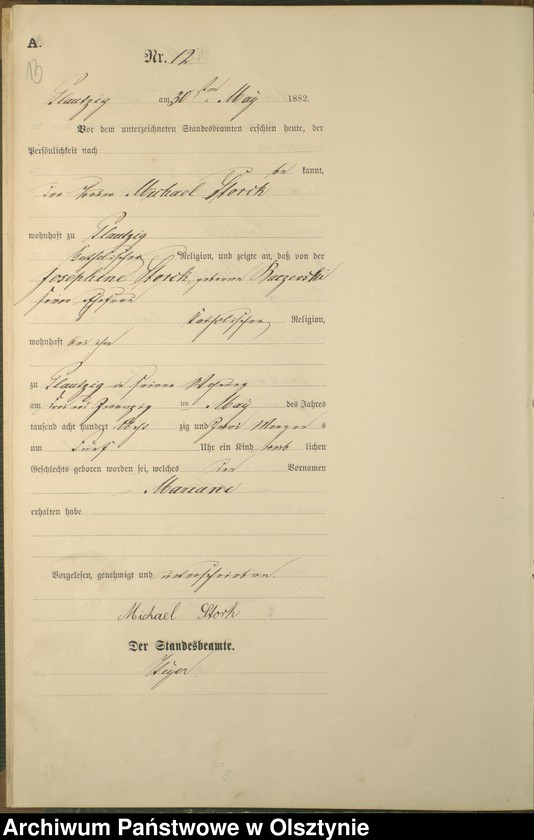 A.
13
Nr. 12
Glautzig am 30 ten May 1882.
Vor dem unterzeichneten Standesbeamten erschien heute, der
Persönlichkeit nach
be kannt,
der Michael Storck
wohnhaft zu Glautzig
katholischer Religion, und zeigte an, daß von der
Josephine Storck, geborene Baczewski
seiner Ehefrau
katholischer Religion,
wohnhaft bei ihm
zu Glautzig in seiner Wohnung
am drei und zwanzig ten May des Jahres
tausend acht hundert acht zig und zwei Morgens
um fünf Uhr ein Kind weib lichen
Geschlechts geboren worden sei, welches den Vornamen
Mariane
erhalten habe
Vorgelesen, genehmigt und unterschrieben.
Michael Stork
Der Standesbeamte.
Archiwum Państwowe w Olsztynie